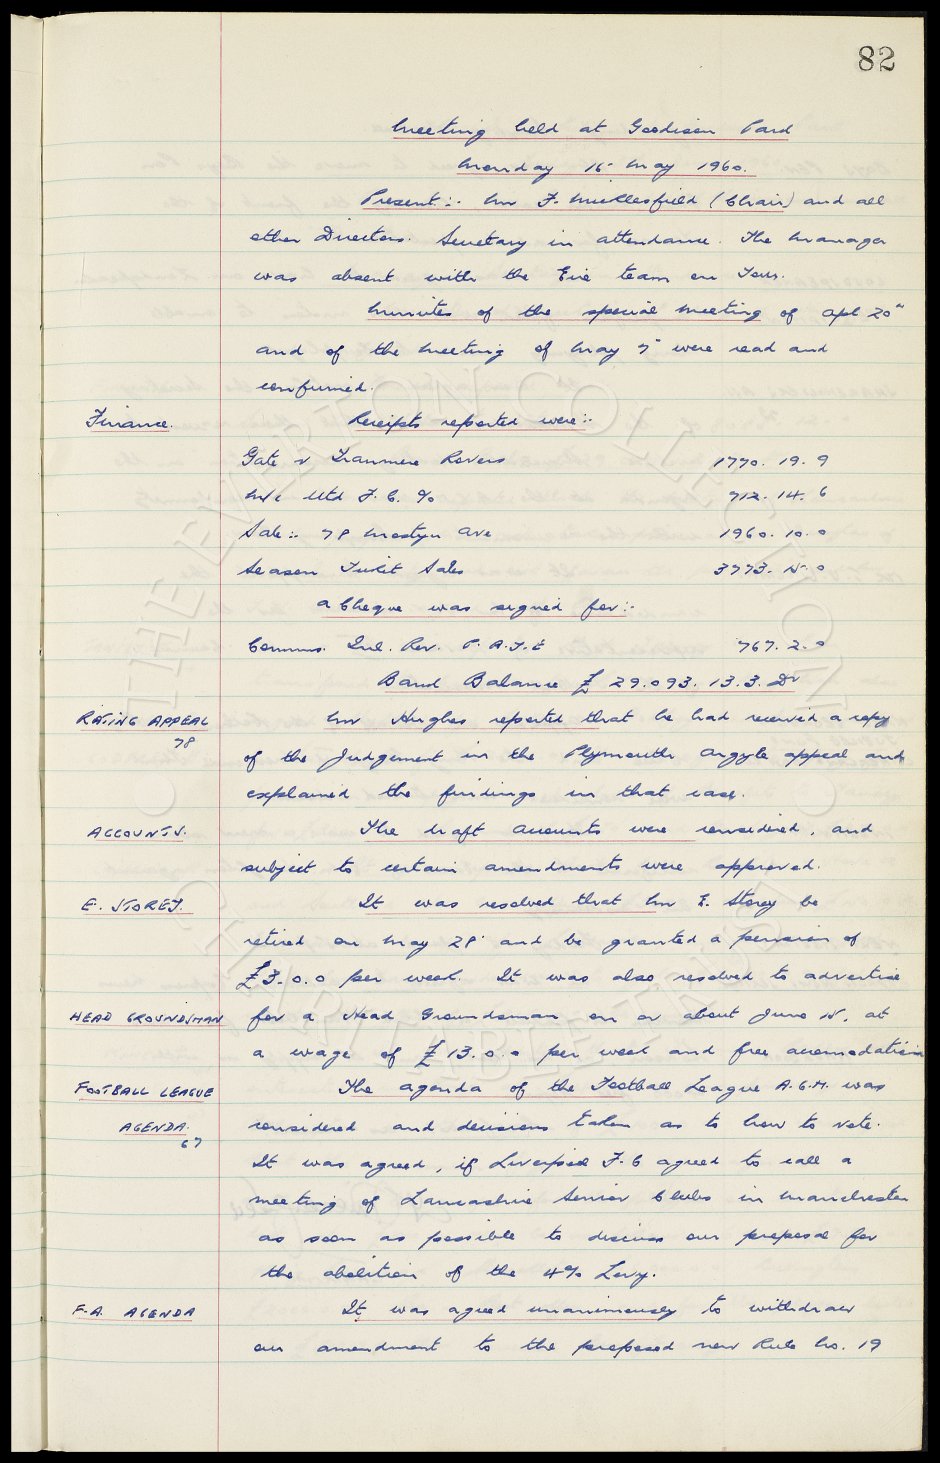 82
Meeting held at Goodison Park
Monday 16th May 1960.
Present:- Mr F. Micklesfield (Chair) and all
other Directors. Secretary in attendance. The Manager
was absent with the Eire team on Tour.
Minutes of the special meeting of Apl 20th
and of the meeting of May 7th were read and
confirmed.
Finance. Receipts reported were:-
Gate v Tranmere Rovers 1770. 19. 9
M/c Utd F.C. % 712. 14. 6
Sale:- 78 Mostyn Ave 1960. 10. 0
Season Ticket Sales 3773. 15. 0
A Cheque was signed for:-
Comms. Inl. Rev. P.A.Y.E 767. 2. 0
Bank Balance £29.093. 13. 3. Dr
RATING APPEAL Mr Hughes reported that he had received a copy
78
of the Judgement in the Plymouth Argyle appeal and
explained the findings in that case.
ACCOUNTS. The draft accounts were considered, and
subject to certain amendments were approved.
E. STOREY. It was resolved that Mr E. Storey be
retired on May 28th and be granted a pension of
£3.0.0 per week. It was also resolved to advertise
HEAD GROUNDSMAN for a Head Groundsman on or about June 15, at
a wage of £13.0.0 per week and free accomodation
FOOTBALL LEAGUE The agenda of the Football League A.G.M. was
AGENDA. considered and decisions taken as to how to vote.
67
It was agreed, if Liverpool F.C agreed to call a
meeting of Lancashire Senior Clubs in Manchester
as soon as possible to discuss our proposal for
the abolition of the 4% Levy.
F.A. AGENDA It was agreed unanimously to withdraw
our amendment to the proposed new Rule No. 19
© THE EVERTON COLLECTION CHARITABLE TRUST